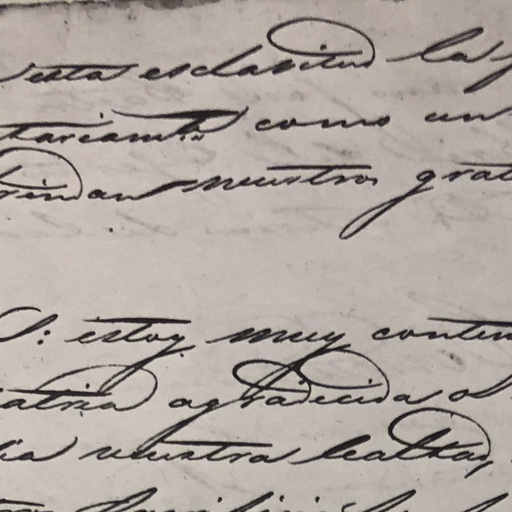 esta esclavitud la
tariamte como un
rindan nuestra grat
S: estoy muy conten
atria agradecida a
ia nuestra lealtad,